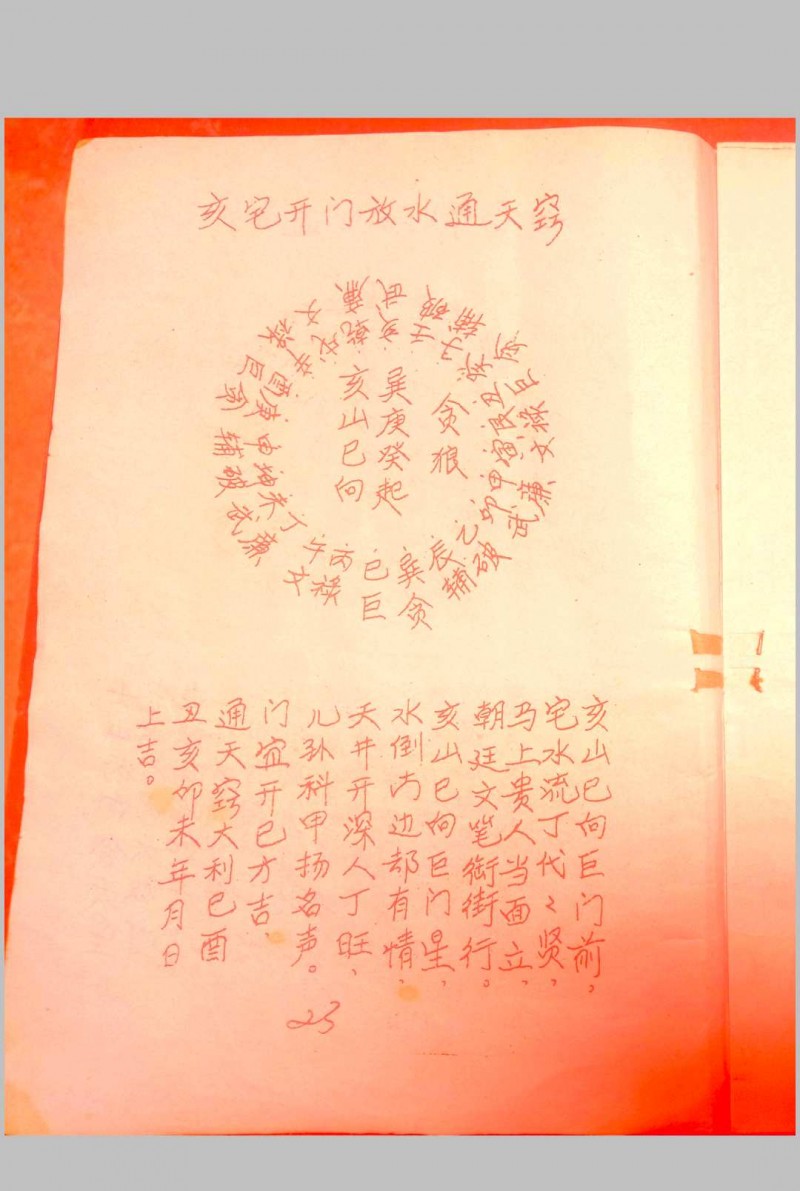 亥宅开门放水通天窍
贪狼
巽庚癸起
亥山巳向
壬子癸丑艮寅甲卯乙辰巽巳丙午丁未坤申庚酉辛戌乾亥
破辅贪巨禄文廉武破辅贪巨禄文廉武破辅贪巨禄文廉武
亥山巳向巨门前，
宅水流丁代々贤，
马上贵人当面立，
朝廷文笔街行。
亥山巳向巨门星，
水倒内边却有情，
天井开深人丁旺、
儿孙科甲扬名声。
门宜开巳方吉、
通天窍大利巳酉
丑亥卯未年月日
上吉。
23